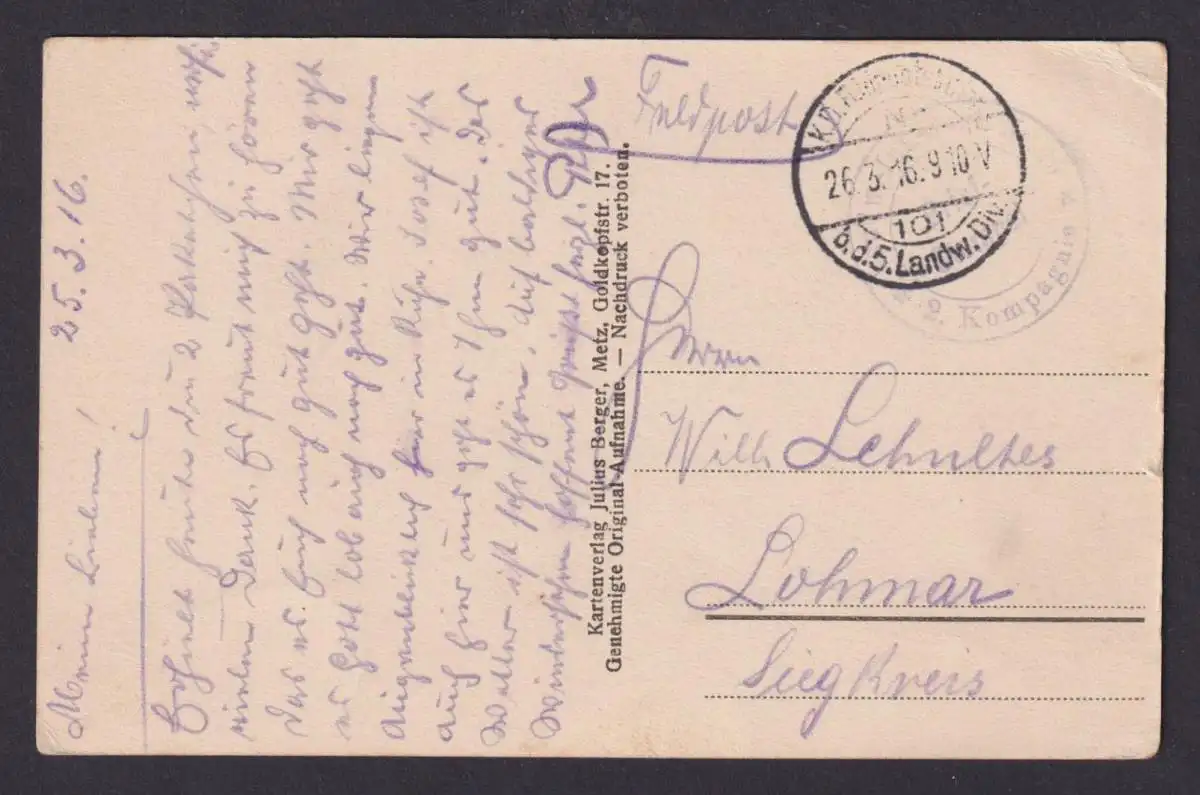 25.3.16.
Mein Lieben!
Erhielt heute den 2 Kartchen, recht
vielen Dank. Es freut mich zu hören
das es Euch noch gut geht. Mir geht
es Gott lob auch noch gut. Wir liegen
Augenblicklich hier in Ruhe. Josef ist
auch hier und geht es Ihm gut. Das
Wetter ist sehr schön. Auf baldiges
Wiedersehen hoffend grüsst herzl.
Kartenverlag Julius Berger, Metz, Goldkopfstr. 17.
Genehmigte Original-Aufnahme. — Nachdruck verboten.
Feldpost
26.3.16.9 10 V
101
b.d.5.Landw.Div.
2. Kompagnie
Herrn
Wilh. Schultes
Lohmar
Siegkreis